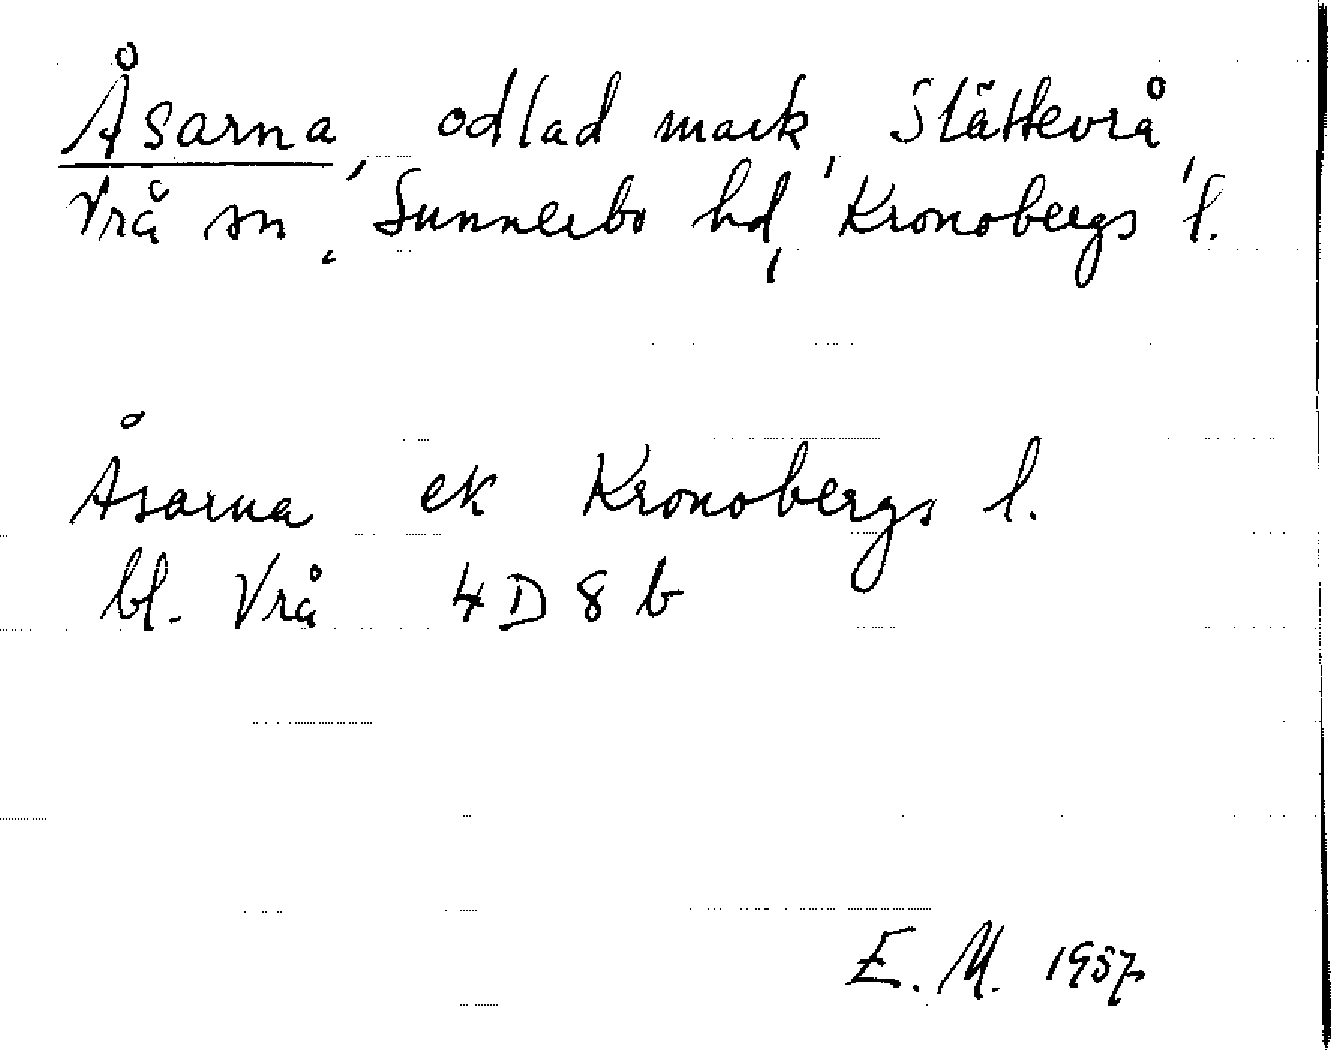 Åsarna, odlad mark, Slättevrå,
Vrå sn, Sunnerbo hd, Kronobergs l.
Åsarna ek Kronobergs l.
bl. Vrå 4D8b
E. M. 1957